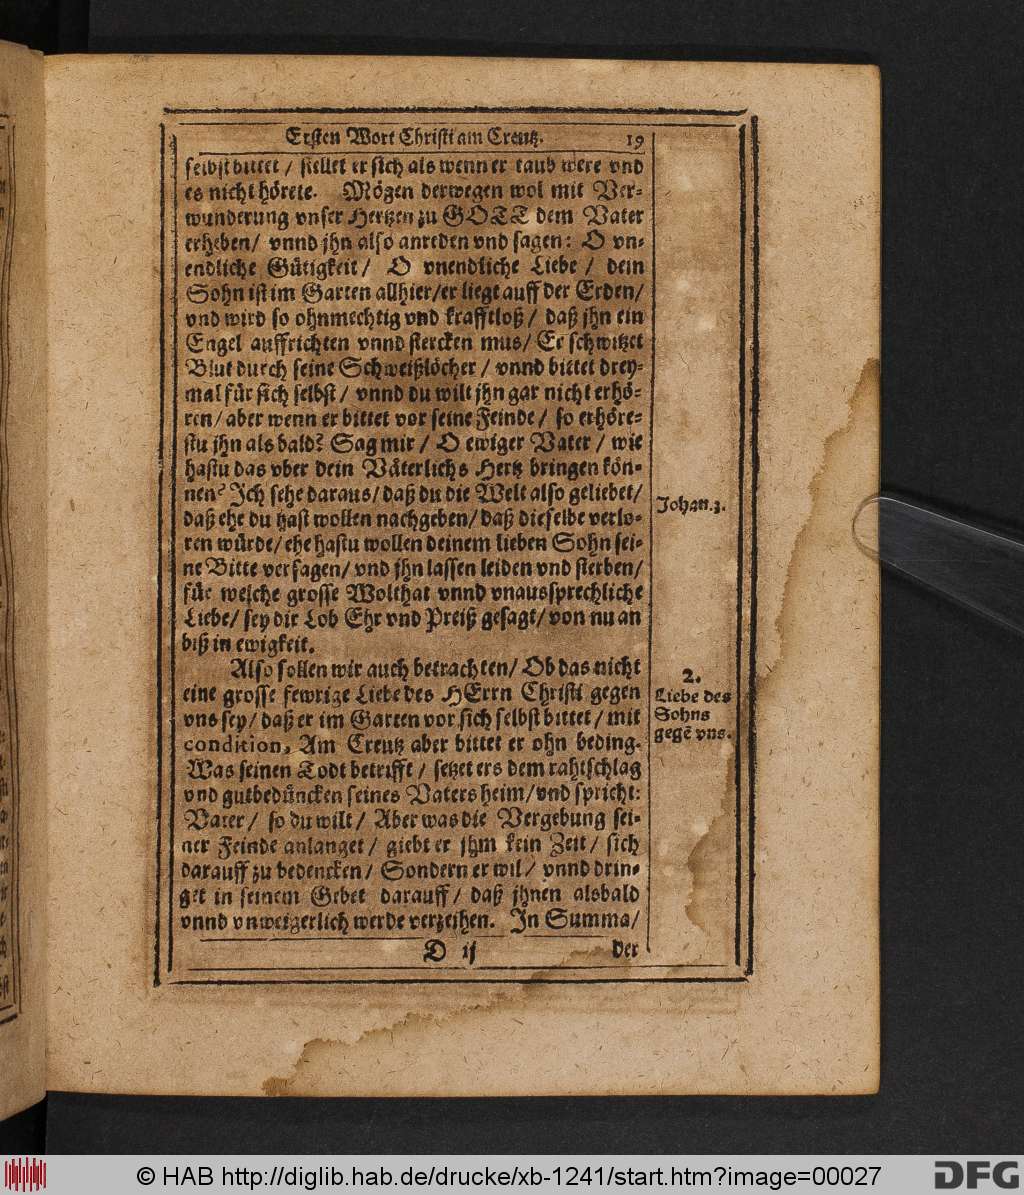 Ersten Wort Christi am Creutz. 19
selbst bittet / stellet er sich als wenn er taub were vnd
es nicht hörete. Mögen derwegen wol mit Ver-
wunderung vnser Hertzen zu GOTT dem Vater
erheben / vnnd jhn also anreden vnd sagen: O vn-
endliche Gütigkeit / O vnendliche Liebe / dein
Sohn ist im Garten allhier / er liegt auff der Erden /
vnd wird so ohnmechtig vnd krafftloß / daß jhn ein
Engel auffrichten vnnd stercken mus / Er schwitzet
Blut durch seine Schweißlöcher / vnnd bittet drey-
mal für sich selbst / vnnd du wilt jhn gar nicht erhö-
ren / aber wenn er bittet vor seine Feinde / so erhöre-
stu jhn als bald? Sag mir / O ewiger Vater / wie
hastu das vber dein Väterlichs Hertz bringen kön-
nen? Ich sehe daraus / daß du die Welt also geliebet /
daß ehe du hast wollen nachgeben / daß dieselbe verlo-
ren würde / ehe hastu wollen deinem lieben Sohn sei-
ne Bitte versagen / vnd jhn lassen leiden vnd sterben /
für welche grosse Wolthat vnnd vnaussprechliche
Liebe / sey dir Lob Ehr vnd Preiß gesagt / von nu an
biß in ewigkeit.
Johan. 3.
Also sollen wir auch betrachten / Ob das nicht
eine grosse fewrige Liebe des HErrn Christi gegen
vns sey / daß er im Garten vor sich selbst bittet / mit
condition, Am Creutz aber bittet er ohn beding.
Was seinen Todt betrifft / setzet ers dem rahtschlag
vnd gutbedüncken seines Vaters heim / vnd spricht:
Vater / so du wilt / Aber was die Vergebung sei-
ner Feinde anlanget / giebt er jhm kein Zeit / sich
darauff zu bedencken / Sondern er wil / vnnd drin-
get in seinem Gebet darauff / daß jhnen alsbald
vnnd vnweigerlich werde verzeihen. In Summa /
2.
Liebe des
Sohns
gegẽ vns.
D ij der
© HAB http://diglib.hab.de/drucke/xb-1241/start.htm?image=00027
DFG